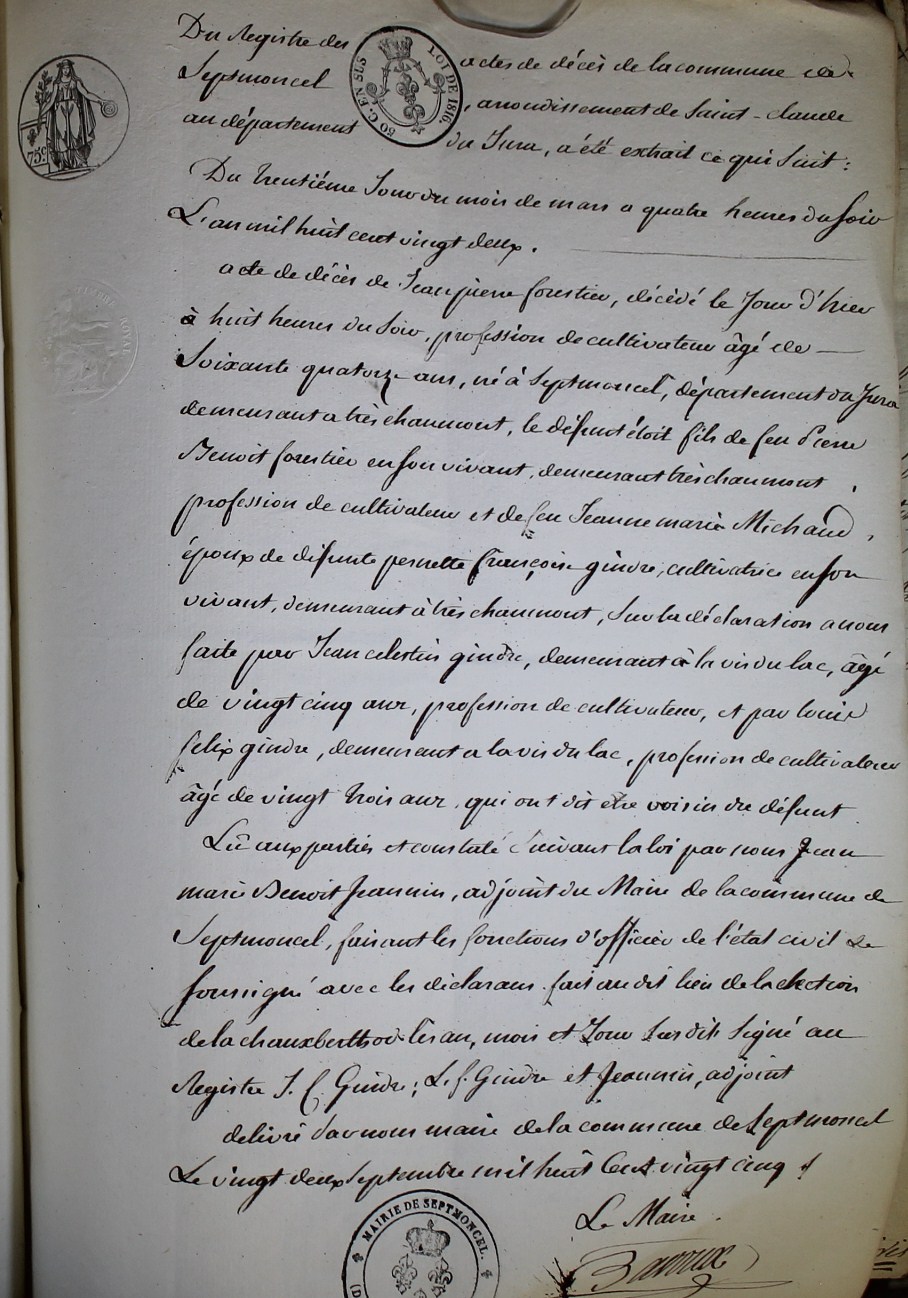 Du Registre des actes de décès de la commune de
Septmoncel, arrondissement de Saint-claude
au département du Jura, a été extrait ce qui suit :
50 C. EN SUS
LOI DE 1816.
75c
Du trentième Jour du mois de mars a quatre heures du soir
L'an mil huit cent vingt deux.
acte de décès de Jean pierre forestier, décédé le Jour d'hier
à huit heures du soir, profession de cultivateur âgé de
Soixante quatorze ans, né à Septmoncel, département du Jura
demeurant a très chaumont, le défunt étoit fils de feu Pierre
Benoit forestier en son vivant, demeurant très chaumont
profession de cultivateur et de feu Jeanne marie Michaud,
époux de défunte pernette françoise gindre, cultivatrice en son
vivant, demeurant à très chaumont, sur la déclaration a nous
faite par Jean celestin gindre, demeurant à la vis du lac, âgé
de vingt cinq ans, profession de cultivateur, et par louis
felix gindre, demeurant a la vis du lac, profession de cultivateur
âgé de vingt trois ans, qui ont dit être voisin du défunt
Lû aux parties et constaté suivant la loi par nous Jean
marie Benoit Jeannin, adjoint du Maire de la commune de
Septmoncel, faisant les fonctions d'officier de l'état civil &
soussigné avec les déclarans fait au dit lieu de la section
de la chauxberthod les an, mois et Jour susdits signé au
Registre J. C. Gindre ; L. f. Gindre et Jeannin, adjoint
delivré par nous maire de la commune de Septmoncel
Le vingt deux septembre mil huit Cent vingt cinq
Le Maire
MAIRIE DE SEPTMONCEL.